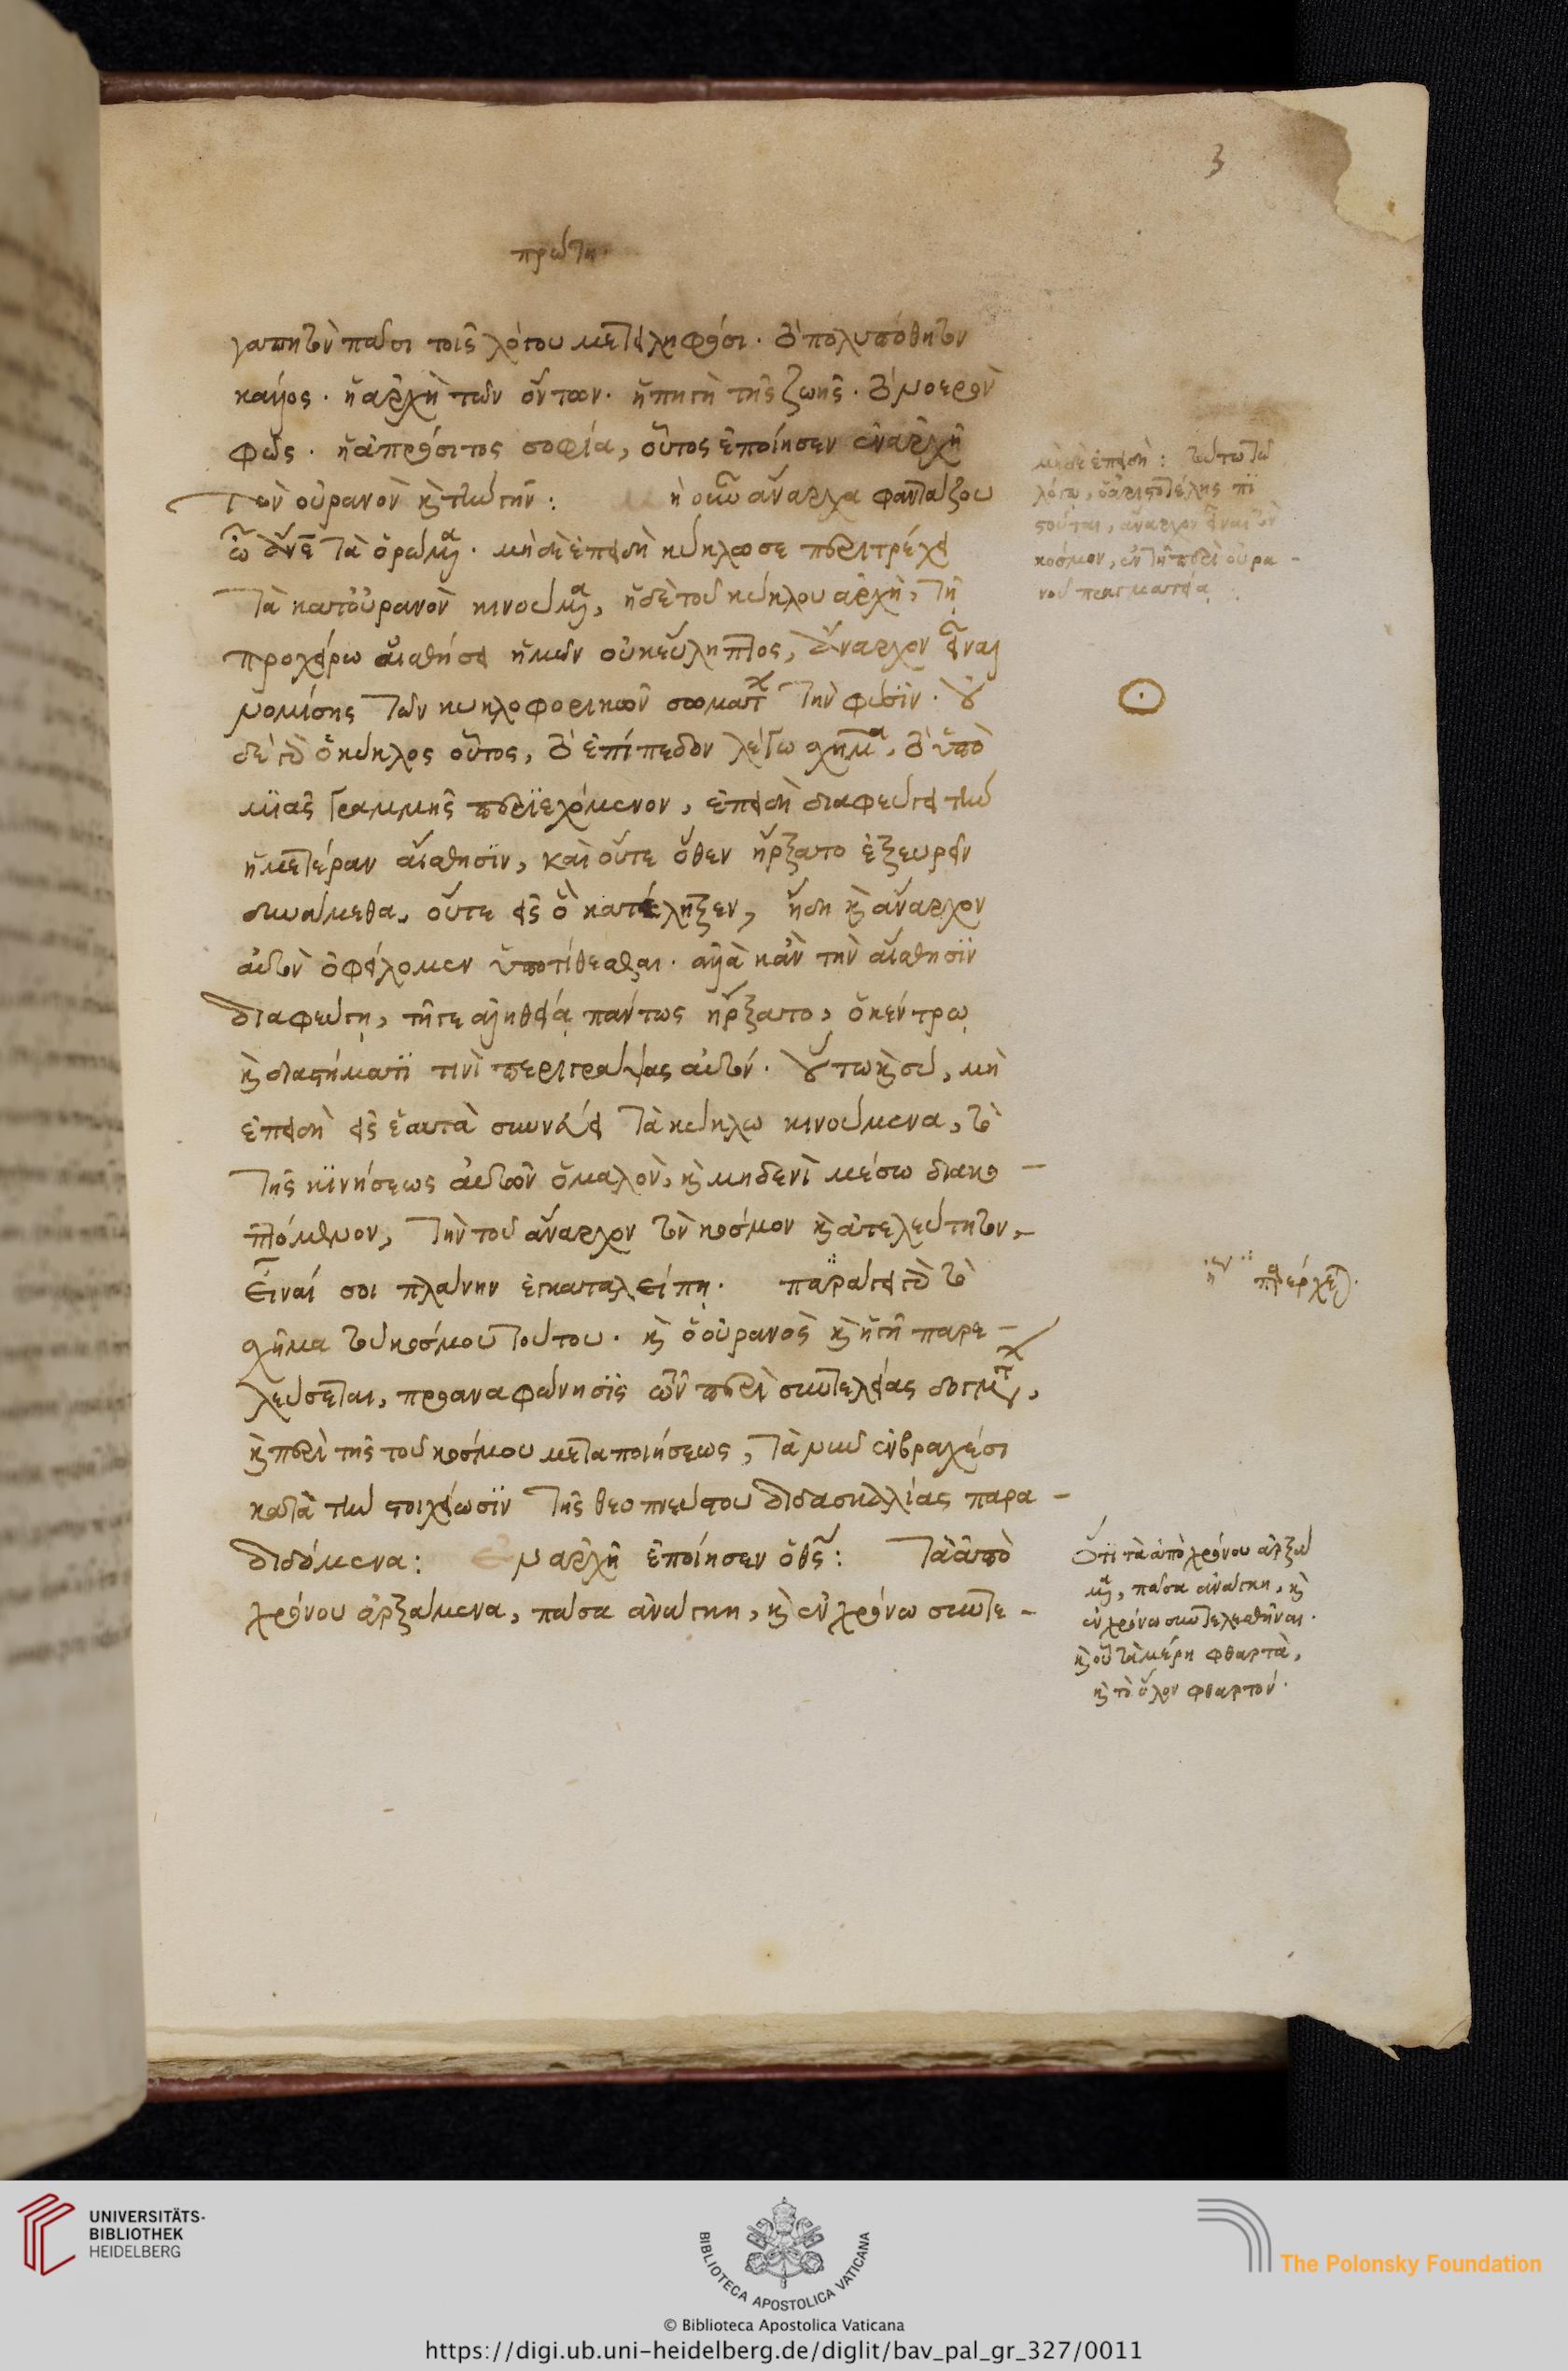 3
πρώτη·
γαπητὸν πᾶσι τοῖς λόγου μετειληφόσι· τὸ πολυπόθητον
κάλλος· ἡ ἀρχὴ τῶν ὄντων· ἡ πηγὴ τῆς ζωῆς· τὸ νοερὸν
φῶς· ἡ ἀπρόσιτος σοφία, οὗτος ἐποίησεν ἐν ἀρχῆ
τὸν οὐρανὸν κ τὴν γῆν: μὴ οὖν ἄναρχα φαντάζου
ὦ ἄνε τὰ ὁρώμενα· μὴδὲ ἐπειδὴ κύκλωσε περιτρέχει
τὰ κατ' οὐρανὸν κινούμενα, ἡ δὲ τοῦ κύκλου ἀρχὴ, τῆ
προχείρω αἰσθήσει ἡμῶν οὐκ εὔληπτος, ἄναρχον εἶναι
νομίσης τῶν κυκλοφορικῶν σωμάτων τὴν φύσϊν· οὐ
δὲ γὰρ ὁ κύκλος οὗτος, τὸ ἐπίπεδον λέγω σχῆμα, τὸ ὑπὸ
μϊᾶς γραμμῆς περϊεχόμενον, ἐπειδὴ διαφεύγει τὴν
ἡμετέραν αἴσθησϊν, καὶ οὔτε ὅθεν ἤρξατο ἐξευρεῖν
δυνάμεθα, οὔτε εἰς ὃ κατέληξεν, ἤδη κ ἄναρχον
αὐτὸν ὀφείλομεν ὑποτίθεσθαι· ἀλλὰ κἂν τὴν αἴσθησϊν
διαφεύγη, τῆ γε ἀληθεία πάντως ἤρξατο, ὁ κέντρω
κ διαστήματϊ τινὶ περιγράψας αὐτόν· οὕτω κ σὺ, μὴ
ἐπειδὴ εἰς ἑαυτὰ συννεύει τὰ κύκλω κινούμενα, τὸ
τῆς κϊνήσεως αὐτῶν ὁμαλὸν, κ μηδενὶ μέσω διακο-
πτόμενον, τὴν τοῦ ἄναρχον τὸν κόσμον κ ἀτελεύτητον,
εἶναί σοι πλάνην ἐγκαταλείπη· παράγει γὰρ τὸ
σχῆμα τοῦ κόσμου τούτου· κ ὁ οὐρανὸς κ ἡ γῆ παρε-
λεύσεται, προαναφώνησϊς τῶν περὶ συντελείας δογμάτων,
κ περὶ τῆς τοῦ κόσμου μεταποιήσεως, τὰ νῦν ἐν βραχέσι
κατὰ τὴν στοιχείωσϊν τῆς θεοπνεύστου διδασκαλίας παρα-
διδόμενα: Ἐν ἀρχῆ ἐποίησεν ὁ θς: τὰ ἀπὸ
χρόνου ἀρξάμενα, πᾶσα ἀνάγκη, κ ἐν χρόνω συντε-
μὴδὲ ἐπειδὴ: τούτω τῶ
λόγω, ὁ ἀριστοτέλης πϊ
στοῦται, ἄναρχον εἶναι τὸν
κόσμον, ἐν τῆ περὶ οὐρα-
νοῦ πραγματεία
Ὅτϊ τὰ ἀπὸ χρόνου ἀρξά
μενα, πᾶσα ἀνάγκη, κ
ἐν χρόνω συντελεσθῆναι·
κ οὗ τὰ μέρη φθαρτὰ,
κ τὸ ὅλον φθαρτόν·
UNIVERSITÄTS-
BIBLIOTHEK
HEIDELBERG
BIBLIOTECA APOSTOLICA VATICANA
The Polonsky Foundation
© Biblioteca Apostolica Vaticana
https://digi.ub.uni-heidelberg.de/diglit/bav_pal_gr_327/0011